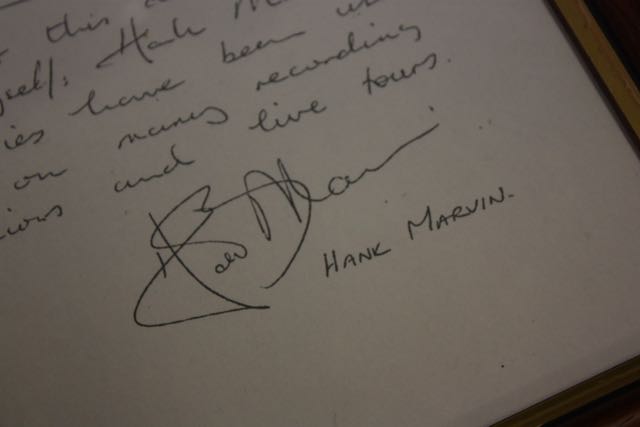 this
self: Hank M
ies have been
on many recording
ions and live tours.
HANK MARVIN.